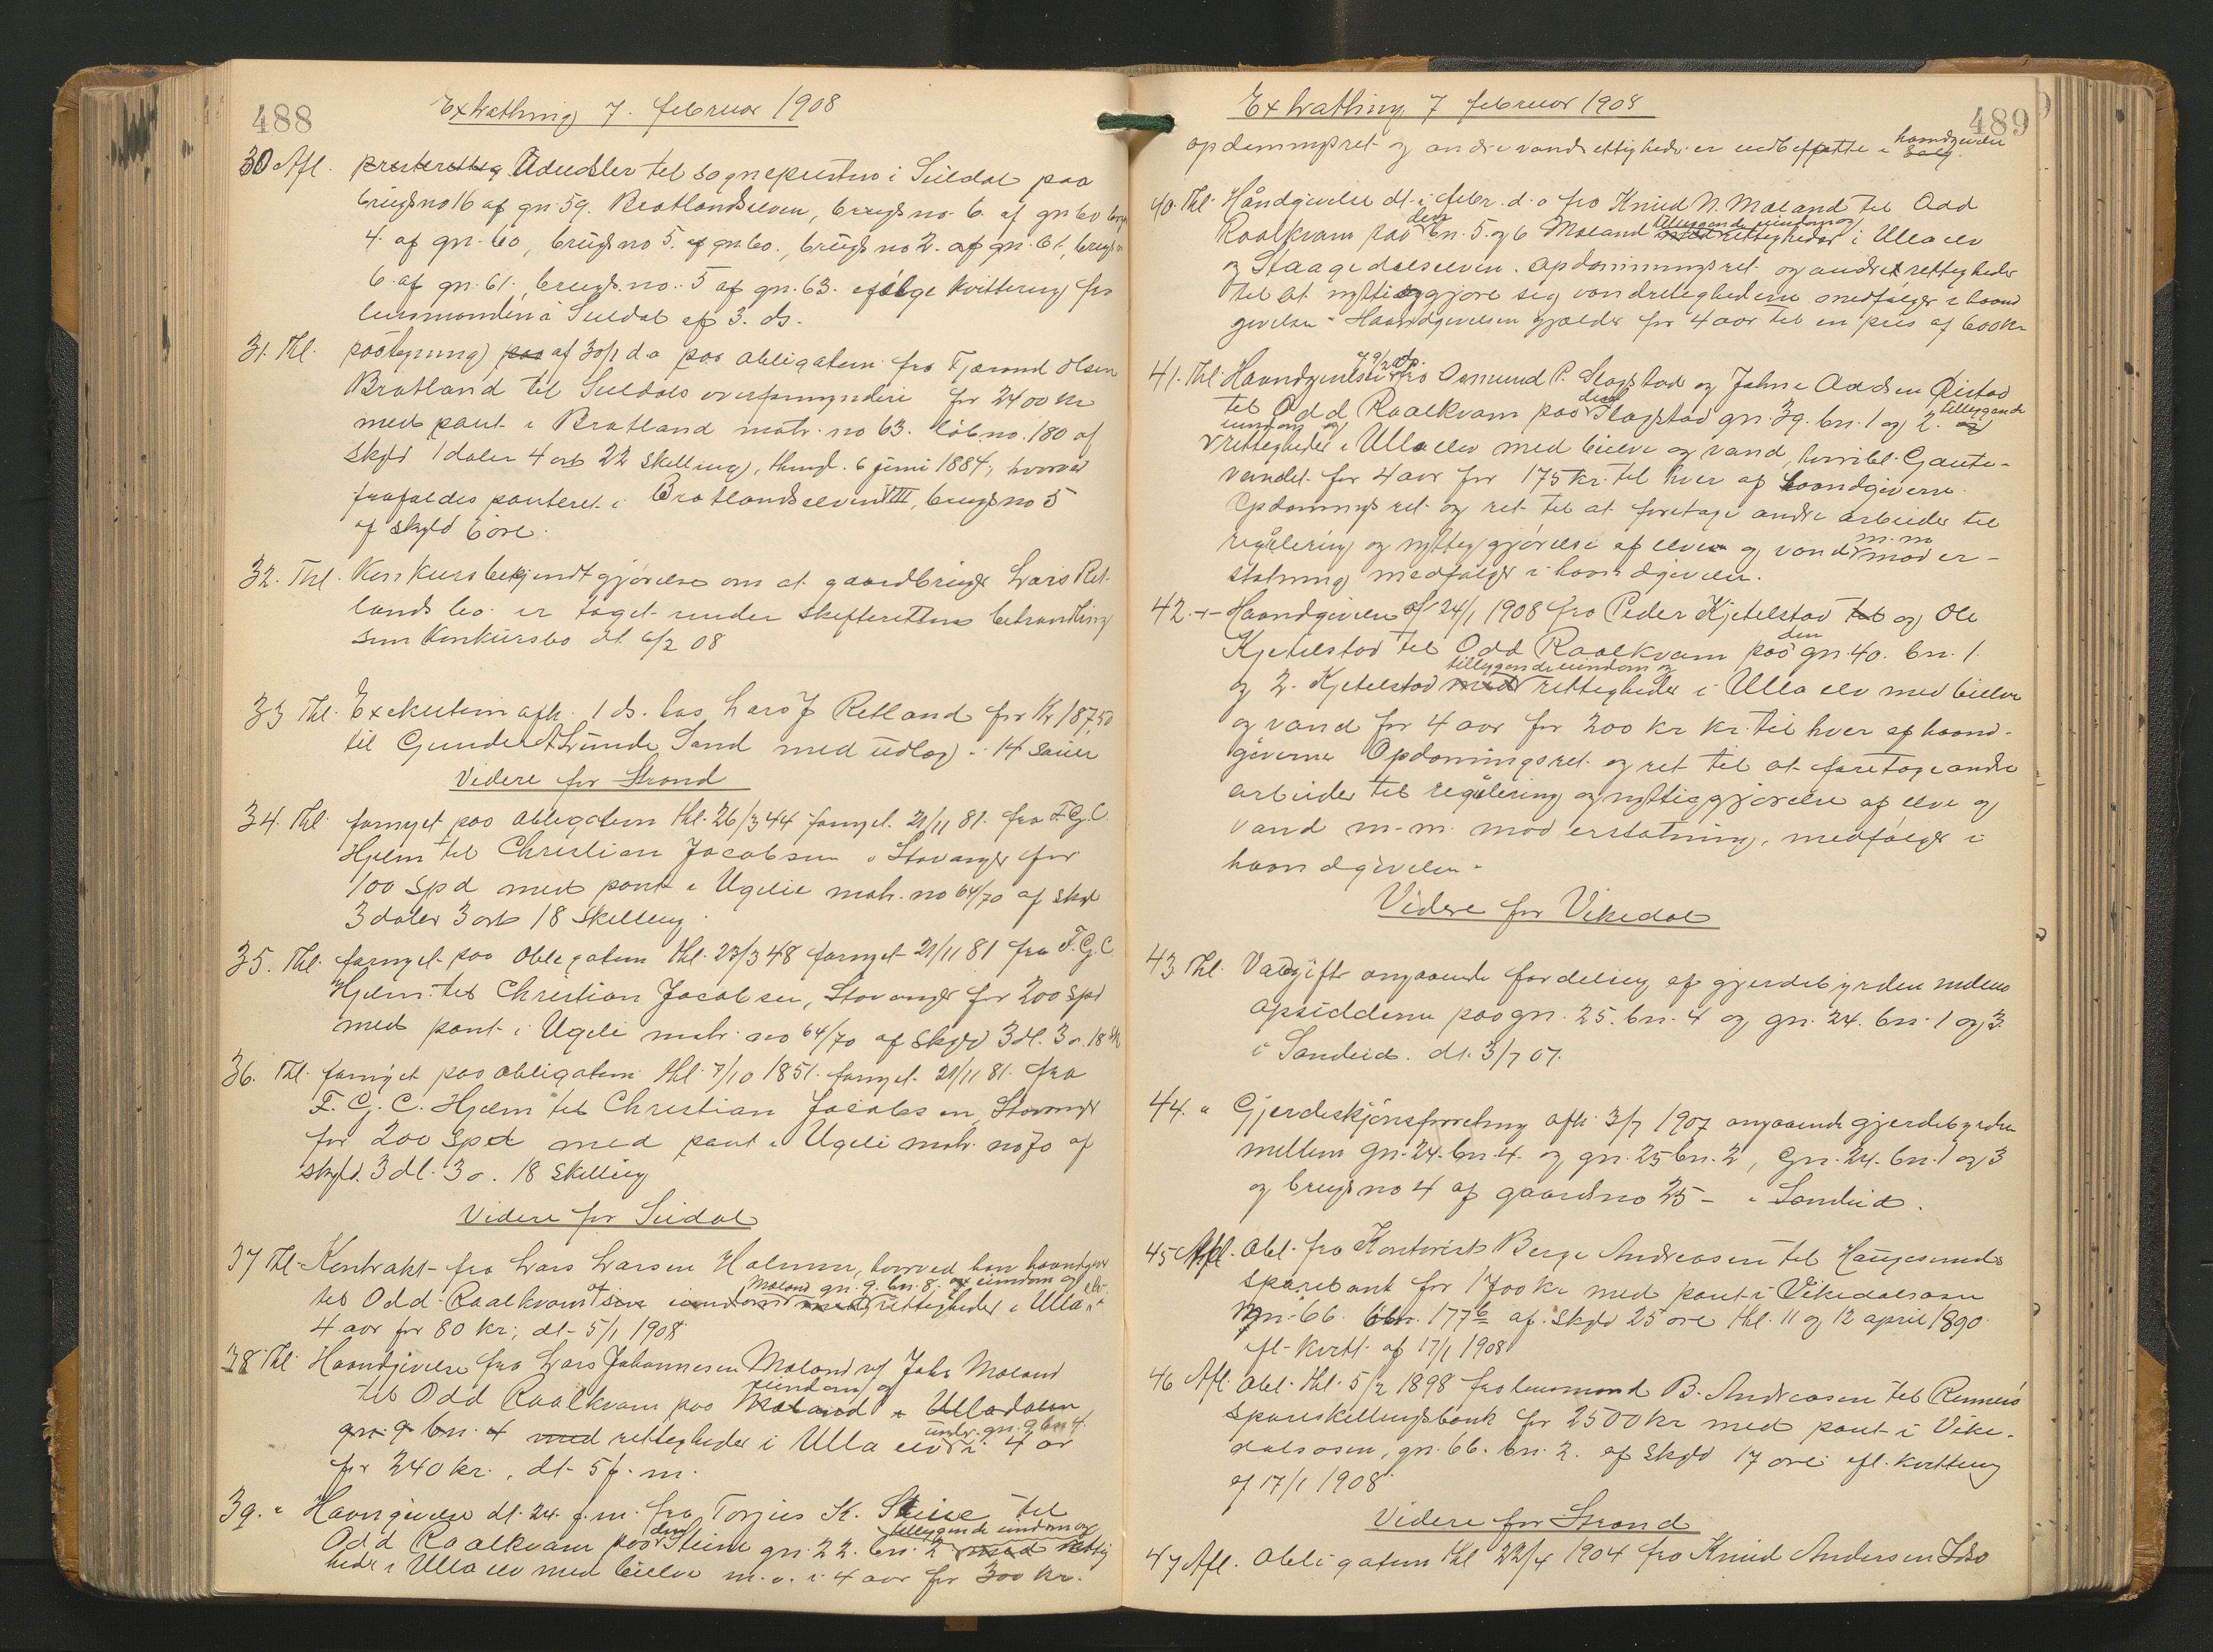 488
Exwathing 7. februar 1908
30 Afl. presterettig Ududsler til sognepresten i Suldal paa
brugsno 16 af gn. 59. Bratlandselven, brugs no. 6. af gn 60 brugs
4. af gn. 60, brugs no 5. af gn. 60., brugs no 2. af gn. 61, brugs n
6. af gn. 61. brugs. no. 5 af gn. 63. ifølge kvittering fra
lensmanden i Suldal af 3. ds.
31. Thl. paategning paa af 30/1 d.a paa obligation fra Tjærand Olsen
Bratland til Suldals overformynderi for 2400 kr
med pant i Bratland matr. no 63. løbno. 180 af
skyld 1 daler 4 ort 22 skilling, thingl. 6 juni 1884, hvorved
frafaldes panteret i Bratlandselven VIII, brugs no 5
af skyld 6 øre.
32. Thl. Konkursbekjendtgjørelse om at gaardbruger Lars Ret-
lands bo er taget under skifterettens behandling
som konkursbo dt 6/2 08
33 Thl. Exekution afh. 1 ds. hos Lars J Retland for Kr 187,50
til Gunder A Lunde, Sand med udlæg i 14 sauer
Videre for Strand
34. Thl. fornyet paa obligation thl. 26/3 44 fornyet. 21/11 81. fra F. G. C.
Hjelm til Christian Jacobsen i Stavanger for
100 Spd med pant i Ugelie matr. no 64/70 af skyld
3 daler 3 ort 18 skilling.
35. Thl. fornyet paa obligation thl. 23/3 48 fornyet 21/11 81 fra F. G. C
Hjelm til Christian Jacobsen, Stavanger for 200 Spd
med pant i Ugeli matr. no 64/70 af skyld 3 dl. 3 o. 18 sk
36. Thl. fornyet paa obligation thl. 7/10 1851. fornyet. 21/11 81. fra
F. G. C. Hjelm til Christian Jacobsen, Stavanger
for 200 Spd med pant i Ugeli matr. no 70 af
skyld. 3 dl. 3 o. 18 skilling
Videre for Suldal
37 Thl. Kontrakt fra Lars Larsen Halmen, hvorved han haandgiver
Moland gn. 9. bn. 8. eiendom og
til Odd Raalkvam af sine eiendom med rettigheder i Ulla elv
4 aar for 80 kr; dt. 5/1 1908
38 Thl. Haandgivelse fra Lars Johannesen Moland og Johs Moland
eiendom og
til Odd Raalkvam paa Moland i Ulladalen
under gn. 9 bn 4
gn. 9 bn. 4 med rettigheder i Ulla elv i 4 år
for 240 kr., dt. 5 f. m.
39. " Haangivelse dt. 24. f. m. fra Torjus K. Steine til
den tilliggende eiendom og
Odd Raalkvam paa Steine gn. 22. bn. 2 med rettig
heder i Ulla elv med bielve m. v. i 4 aar for 300 kr.
489
Exwathing 7 februar 1908
opdemningsret og andre vandrettigheder er indbefattet i haandgivelse salg.
40. Thl. Håndgivelse dt. i febr. d. a fra Knud N. Moland til Odd
den tilliggende eiendom og
Raalkvam paa bn. 5. og 6 Moland med rettigheder i Ulla elv
og Staagedalselven. Opdæmningsret og andre rettigheder
til at nyttiggjøre sig vandrettighederne medfølger i haand
givelsen. Haandgivelsen gjælder for 4 aar til en pris af 600 kr
41. Thl. Haandgivelse af 9/2 dp. fra Osmund P. Slagstad og Johne Aadsen Øistad
den tilliggende
til Odd Raalkvam paa Slagstad gn. 39. bn. 1 og 2. og
eiendom og
rettigheder i Ulla elv med bielve og vand, hvoribl. Gaute-
vandet. for 4 aar for 175 kr. til hver af haandgiverne.
Opdæmningsret og ret til at foretage andre arbeider til
m. m
regulering og nyttiggjørelse af elven og vand mod er-
statning medfølger i haandgivelsen.
42. -"- Haandgivelse af 24/1 1908 fra Peder Kjetelstad til og Ole
den
Kjetelstad til Odd Raalkvam paa gn. 40. bn. 1.
tilliggende eiendom og
og 2. Kjetelstad med rettigheder i Ulla elv med bielve
og vand for 4 aar for 200 kr kr. til hver af haand-
giverne Opdæmningsret og ret til at foretage andre
arbeider til regulering og nyttiggjørelse af elve og
vand m. m. mod erstatning, medfølger i
haandgivelsen.
Videre for Vikedal
43 Thl. Vedgift angaaende fordeling af gjerdebyrden mellem
opsidderne paa gn. 25. bn. 4 og gn. 24. bn. 1 og 3
i Sandeid. dt. 3/7 07.
44. " Gjerdeskjønsforretning afh. 3/7 1907 angaaende gjerdebyrden
mellem gn. 24. bn. 4. og gn. 25 bn. 2, gn. 24. bn. 1 og 3
og brugs no 4 af gaardsno 25 - i Sandeid.
45 Afl. Obl. fra Kontorist Berge Andreasen til Haugesunds
sparebank for 1700 kr med pant i Vikedalsosen
gn. 66. løbn. 177 b af skyld 25 øre thl. 11 og 12 april 1890.
ifl. kvitt. af 17/1 1908
46 Afl. Obl. thl. 5/2 1898 fra lensmand B. Andreasen til Rennesø
Spareskillingsbank for 2500 kr med pant i Vike-
dalsosen, gn. 66. bn. 2. af skyld 17 øre ifl. kvittering
af 17/1 1908.
Videre for Strand
47 Afl. Obligation thl 22/4 1904 fra Knud Andersen Idsø